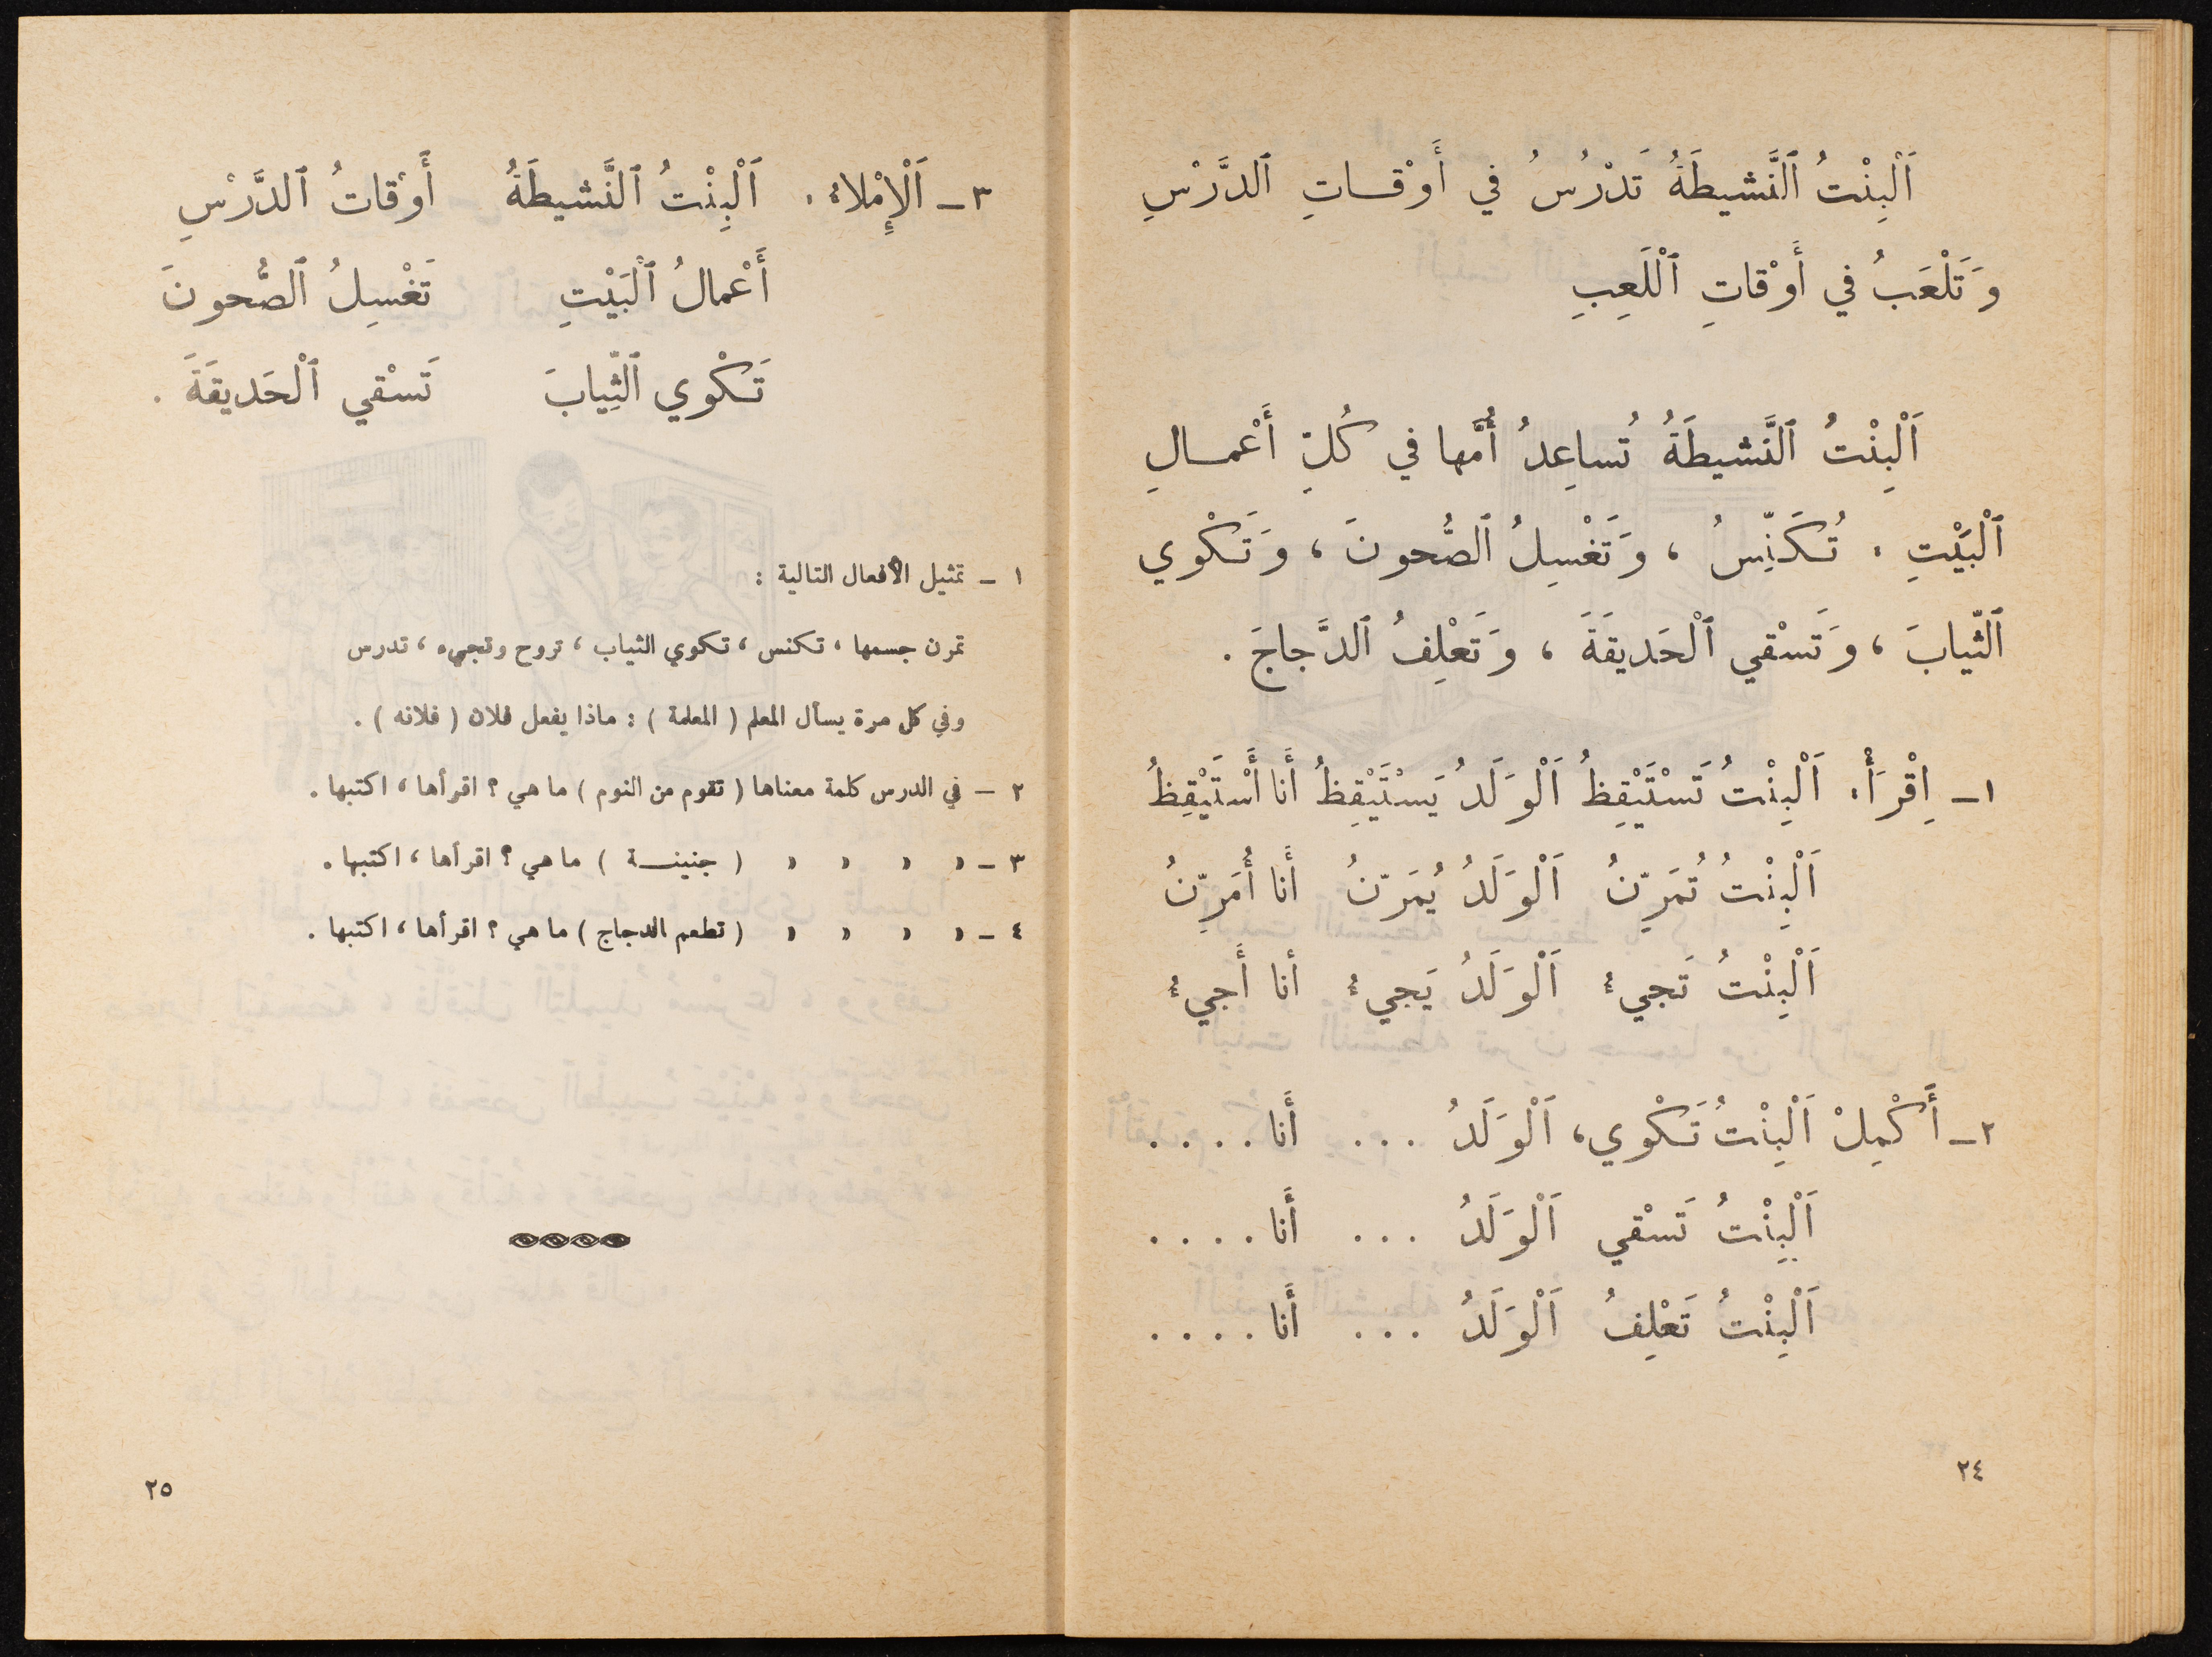 اَلْبِنْتُ ٱلنَّشيطَةُ تَدْرُسُ في أَوْقـاتِ ٱلدَّرْسِ
وَتَلْعَبُ في أَوْقاتِ ٱلْلَعِبِ
اَلْبِنْتُ ٱلنَّشيطَةُ تُساعِدُ أُمَّها في كُلِّ أَعْمـالِ
ٱلْبَيْتِ . تُكَنِّسُ ، وَتَغْسِلُ ٱلصُّحونَ ، وَتَكْوي
ٱلثِّيابَ ، وَتَسْقي ٱلْحَديقَةَ ، وَتَعْلِفُ ٱلدَّجاجَ .
١ـ اِقْرَأْ. اَلْبِنْتُ تَسْتَيْقِظُ اَلْوَلَدُ يَسْتَيْقِظُ أَنا أَسْتَيْقِظُ
اَلْبِنْتُ تُمَرِّنُ اَلْوَلَدُ يُمَرِّنُ أَنا أُمَرِّنُ
اَلْبِنْتُ تَجيءُ اَلْوَلَدُ يَجيءُ أنا أَجيءُ
٢ـ أَكْمِلْ اَلْبِنْتُ تَكْوي، اَلْوَلَدُ ... أَنا ....
اَلْبِنْتُ تَسْقي اَلْوَلَدُ ... أَنا ....
اَلْبِنْتُ تَعْلِفُ اَلْوَلَدُ ... أَنا ....
٢٤
٣ـ اَلْإِمْلاءُ . اَلْبِنْتُ ٱلنَّشيطَةُ أَوْقاتُ ٱلدَّرْسِ
أَعْمالُ ٱلْبَيْتِ تَغْسِلُ ٱلصُّحونَ
تَكْوي ٱلثِّيابَ تَسْقي ٱلْحَديقَةَ .
١ ـ تمثيل الأفعال التالية :
تمرن جسمها ، تكنس ، تكوي الثياب ، تروح وتجيء ، تدرس
وفي كل مرة يسأل المعلم ( المعلمة ) : ماذا يفعل فلان ( فلانه ) .
٢ ـ في الدرس كلمة معناها ( تقوم من النوم ) ما هي ؟ اقرأها ، اكتبها .
٣ ـ » » » » ( جنينـة ) ما هي ؟ اقرأها ، اكتبها .
٤ ـ » » » » ( تطعم الدجاج ) ما هي ؟ اقرأها ، اكتبها .
٢٥